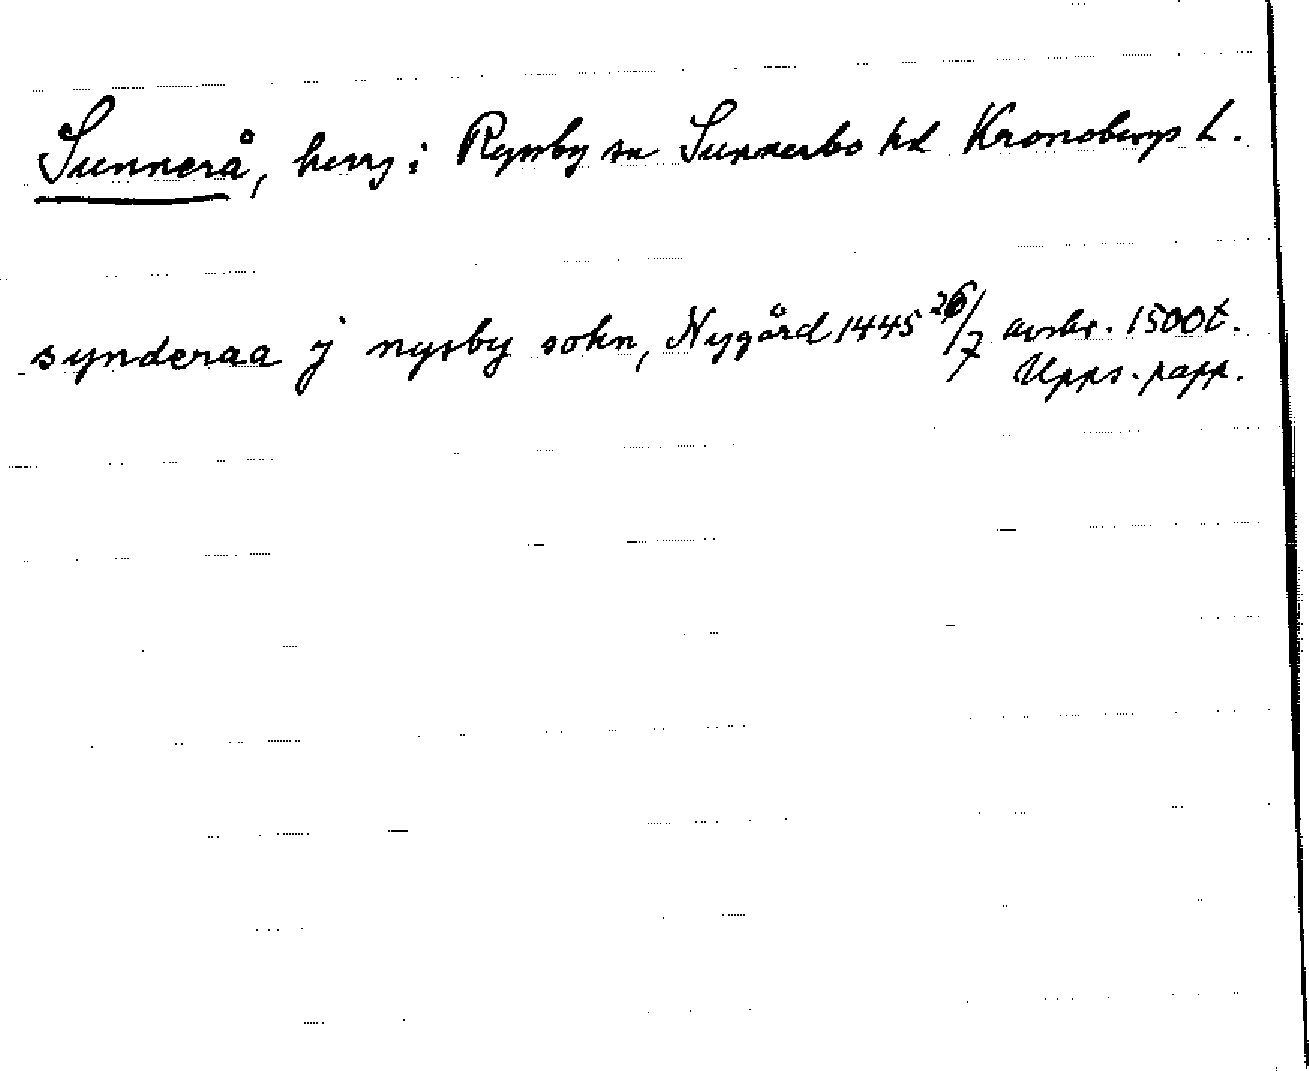 Sunnerå, herrg i Ryssby sn Sunnerbo hd Kronobergs L.
synderaa j nysby sokn, Nygård 1445 26/7 avskr. 1500t.
Upps. papp.